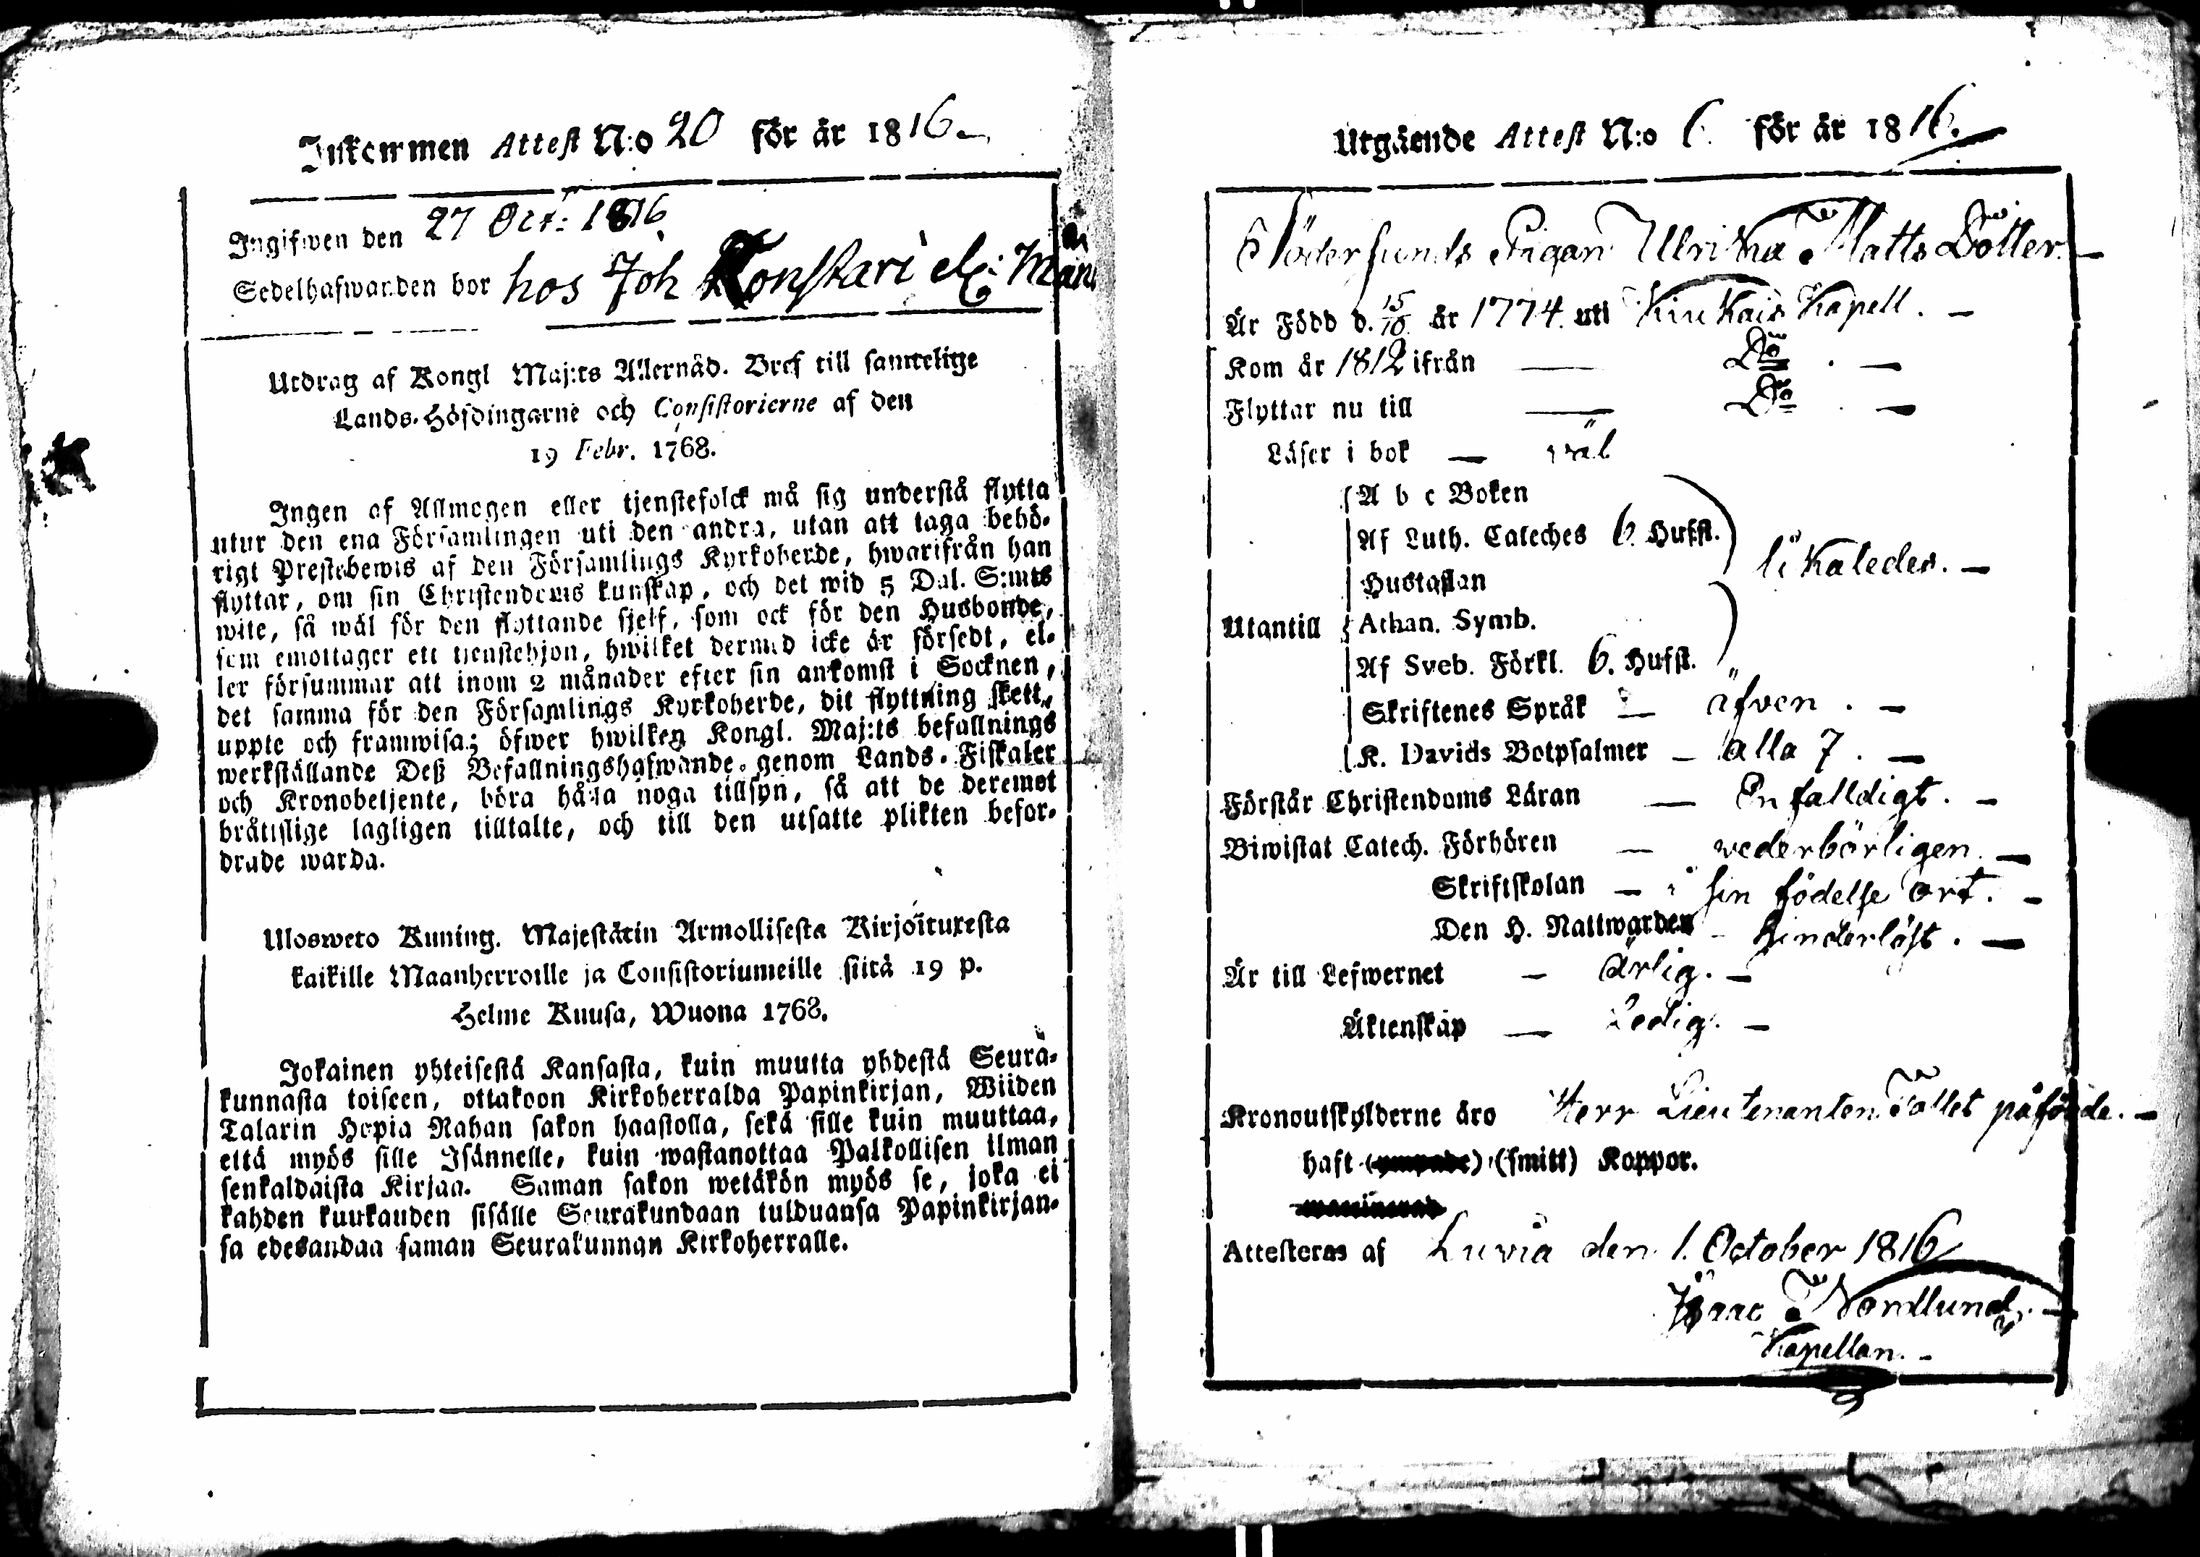 Inkommen Attest N:o 20 för år 1816.
Ingifwen den 27 Oct: 1816
Sedelhafwanden bor hos Joh Konstari
Utdrag af Kongl Maj:ts Allernåd. Bref till samtelige
Lands-Höfdingarne och Consistorierne af den
19 Febr. 1768.
Ingen af Allmogen eller tjenstefolck må sig understå flytta
utur den ena Församlingen uti den andra, utan att taga behö-
rigt Prestebewis af den Församlings Kyrkoherde, hwarifrån han
flyttar, om sin Christendoms kunskap, och det wid 5 Dal. S:mts
wite, så wäl för den flyttande sjelf, som ock för den Husbonde,
som emottager ett tjenstehjon, hwilket dermed icke är försedt, el-
ler försummar att inom 2 månader efter sin ankomst i Socknen,
det samma för den Församlings Kyrkoherde, dit flyttning skett,
uppte och framwisa; öfwer hwilken Kongl. Maj:ts befallnings
werkställande Deß Befallningshafwande, genom Lands-Fiskaler
och Kronobetjente, böra hålla noga tillsyn, så att de deremot
bråttslige lagligen tilltalte, och till den utsatte plikten befor-
drade warda.
Ulosweto Kuning. Majestätin Armollisesta Kirjoituxesta
kaikille Maanherroille ja Consistoriumeille siitä 19 p.
Helme Kuusa, Wuona 1768.
Jokainen yhteisestä Kansasta, kuin muutta yhdestä Seura-
kunnasta toiseen, ottakoon Kirkoherralda Papinkirjan, Wiiden
Talarin Hopia Rahan sakon haastolla, sekä sille kuin muuttaa,
että myös sille Isännelle, kuin wastanottaa Palkollisen ilman
senkaldaista Kirjaa. Saman sakon wetäkön myös se, joka ei
kahden kuukauden sisälle Seurakundaan tulduansa Papinkirjan-
sa edesandaa saman Seurakunnan Kirkoherralle.
Utgående Attest N:o 6. för år 1816.
Södersunds Pigan Ulrika Matts Dotter.
Är Född d. 15/10 år 1774. uti Kiukais Kapell.
Kom år 1812 ifrån — Do.
Flyttar nu till — Do.
Läser i bok — väl
Utantill
A b c Boken
Af Luth. Cateches 6. Hufst.
Hustaflan
likaledes.
Athan. Symb.
Af Sveb. Förkl. 6. Hufst.
Skriftenes Språk — äfven.
K. Davids Botpsalmer — alla 7.
Förstår Christendoms Läran — Enfalldigt.
Biwistat Catech. Förhören — vederbörligen.
Skriftskolan — i sin födelse ort.
Den H. Nattwarden — hinderlöst.
Är till Lefwernet — ärlig.
Äktenskap — Ledig.
Kronoutskylderne äro Herr Lieutenanten påförde.
haft (smitt) Koppor.
Attesteras af Luvia den 1. October 1816
Isaac Nordlund
Kapellan.